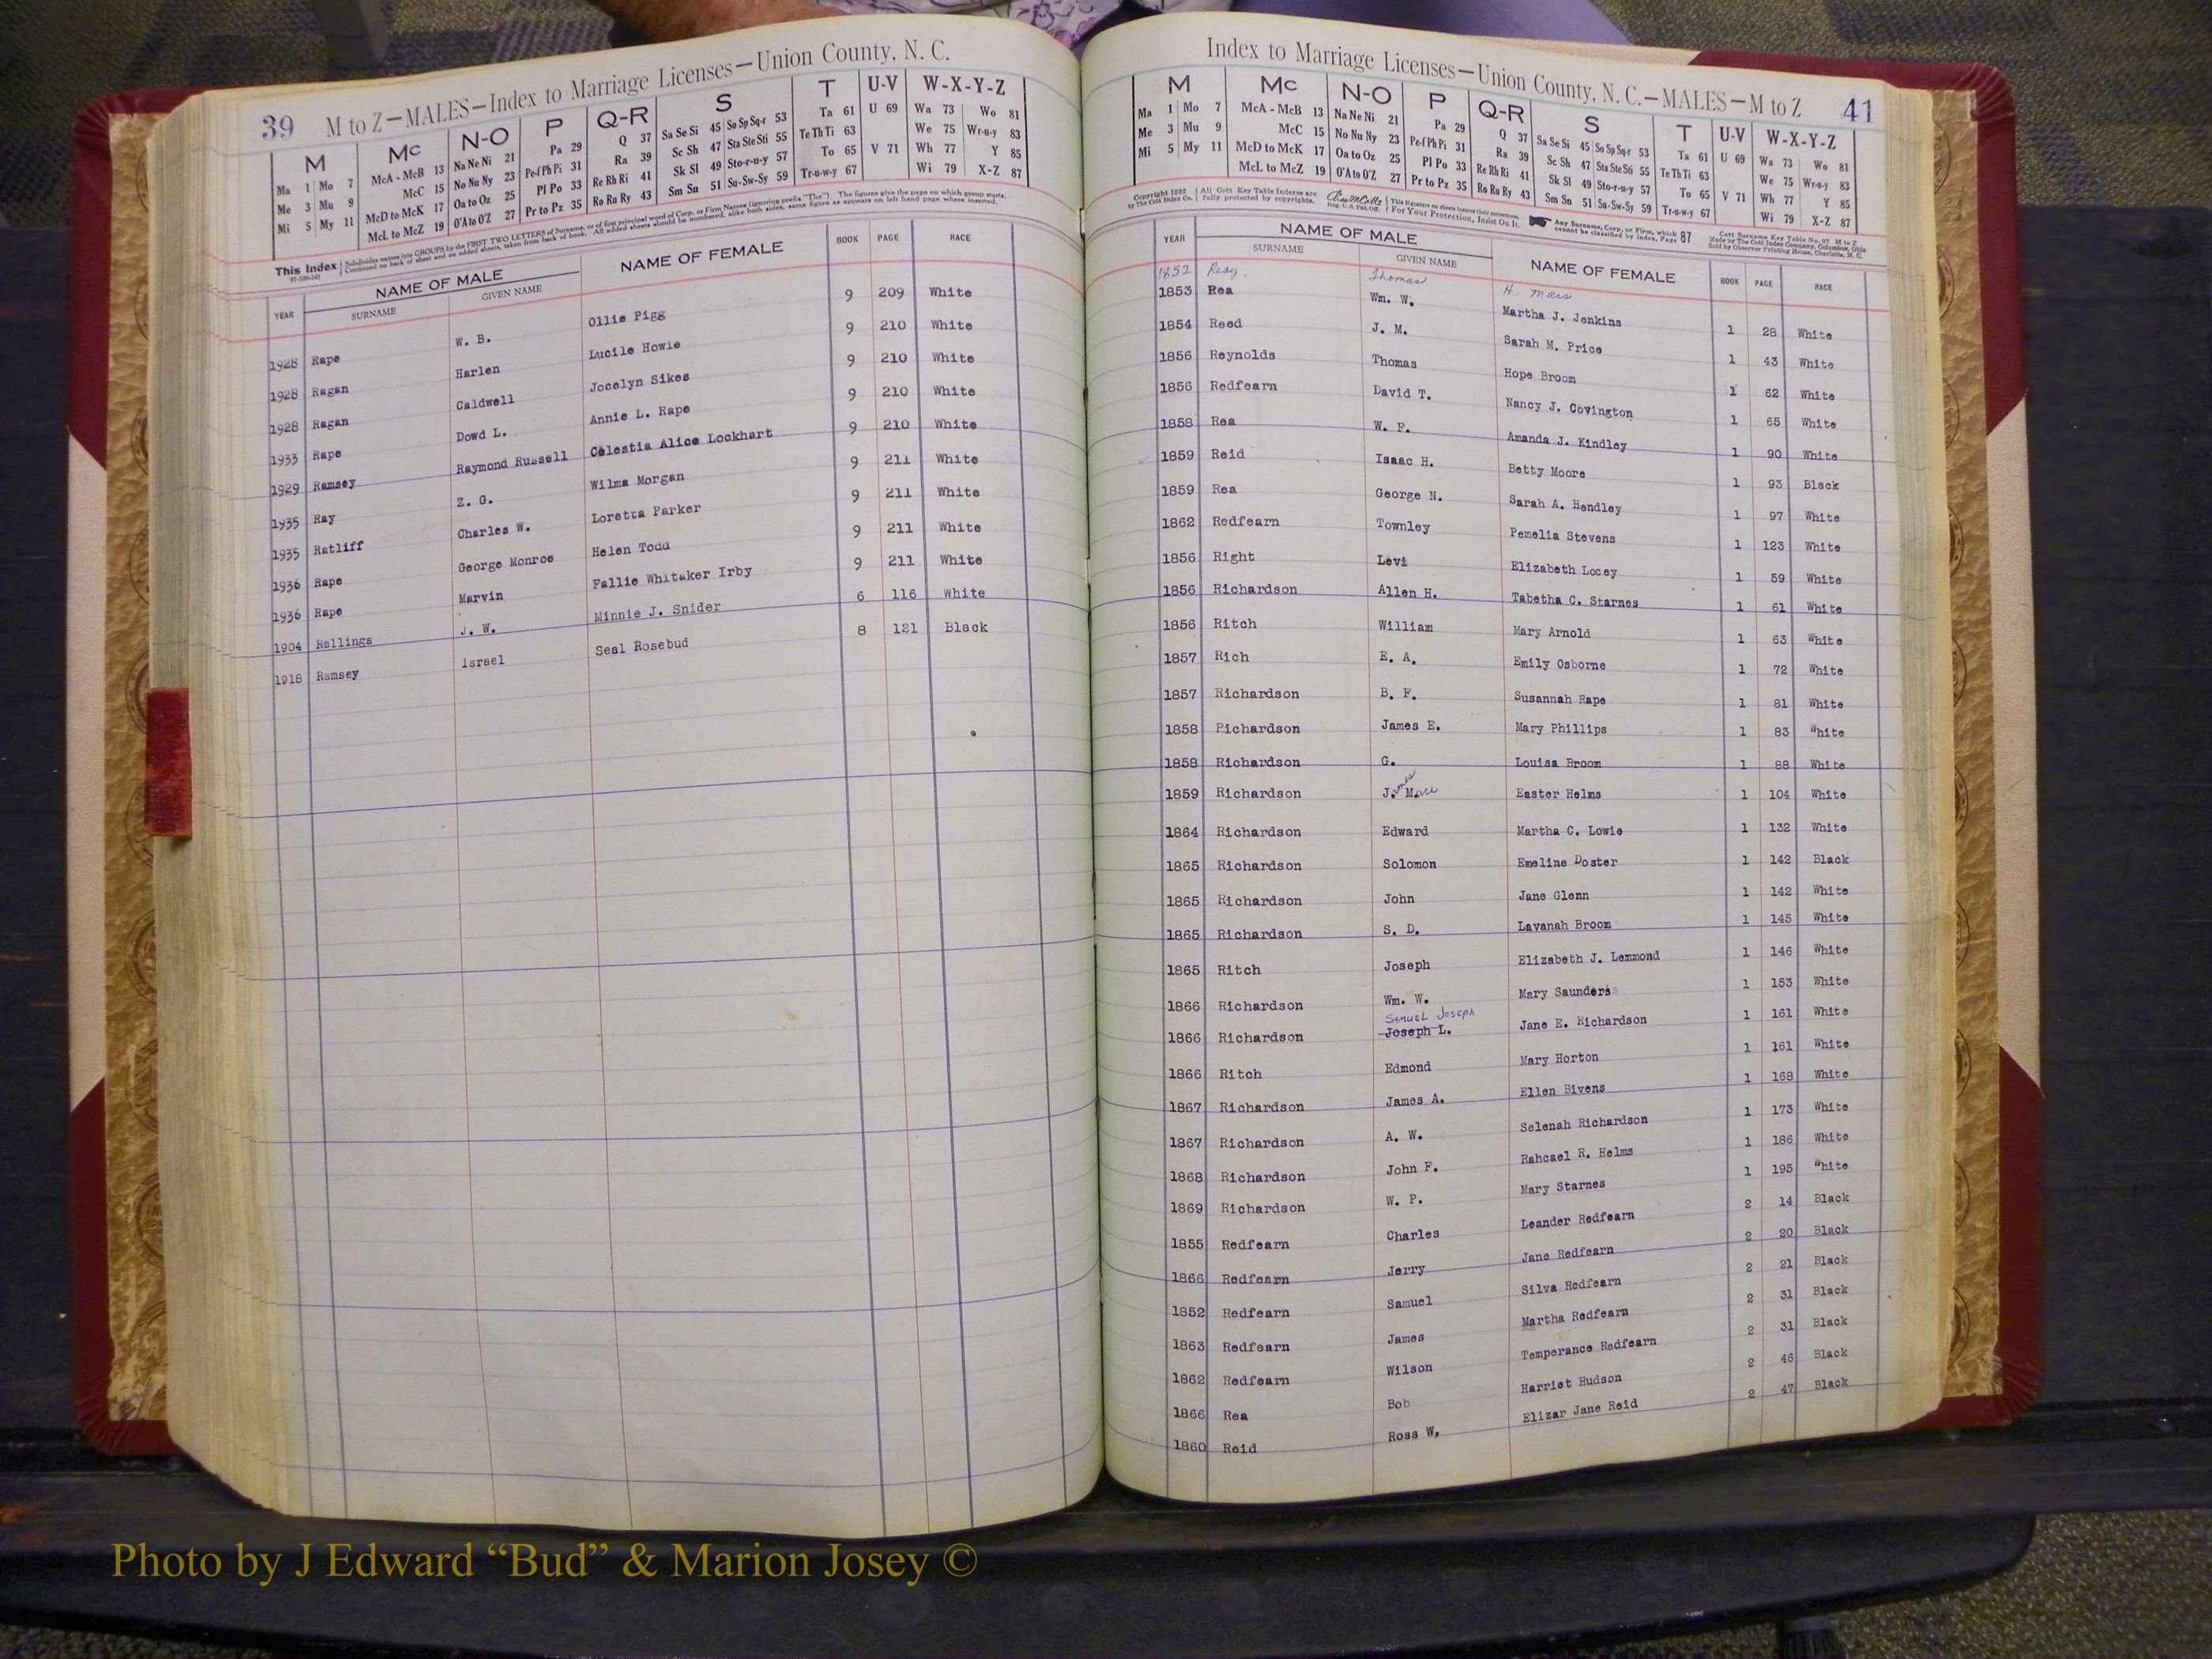 39 M to Z—MALES—Index to Marriage Licenses—Union County, N. C.
M Mc N-O P Q-R S T U-V W-X-Y-Z
Ma 1 Mo 7 McA - McB 13 Na Ne Ni 21 Pa 29 Q 37 Sa Se Si 45 So Sp Sq-r 53 Ta 61 U 69 Wa 73 Wo 81
Me 3 Mu 9 McC 15 No Nu Ny 23 Pe-f Ph Pi 31 Ra 39 Sc Sh 47 Sta Ste Sti 55 Te Th Ti 63 We 75 Wr-u-y 83
Mi 5 My 11 McD to McK 17 Oa to Oz 25 Pl Po 33 Re Rh Ri 41 Sk Sl 49 Sto-r-u-y 57 To 65 V 71 Wh 77 Y 85
McL to McZ 19 O'A to O'Z 27 Pr to Pz 35 Ro Ru Ry 43 Sm Sn 51 Su-Sw-Sy 59 Tr-u-w-y 67 Wi 79 X-Z 87
This Index Subdivides names into GROUPS by the FIRST TWO LETTERS of Surname, or of first principal word of Corp. or Firm Names (ignoring prefix "The"). The figures give the page on which group starts.
Continued on back of sheet and on added sheets, taken from back of book. All added sheets should be numbered, alike both sides, same figure as appears on left hand page where inserted.
YEAR NAME OF MALE NAME OF FEMALE BOOK PAGE RACE
SURNAME GIVEN NAME
1928 Rape W. B. Ollie Pigg 9 209 White
1928 Ragan Harlen Lucile Howie 9 210 White
1928 Ragan Caldwell Jocelyn Sikes 9 210 White
1933 Rape Dowd L. Annie L. Rape 9 210 White
1929 Ramsey Raymond Russell Celestia Alice Lockhart 9 210 White
1935 Ray Z. G. Wilma Morgan 9 211 White
1935 Ratliff Charles W. Loretta Parker 9 211 White
1936 Rape George Monroe Helen Todd 9 211 White
1936 Rape Marvin Fallie Whitaker Irby 9 211 White
1904 Rallings J. W. Minnie J. Snider 6 116 White
1918 Ramsey Israel Seal Rosebud 8 121 Black
Index to Marriage Licenses—Union County, N. C.—MALES—M to Z 41
M Mc N-O P Q-R S T U-V W-X-Y-Z
Ma 1 Mo 7 McA - McB 13 Na Ne Ni 21 Pa 29 Q 37 Sa Se Si 45 So Sp Sq-r 53 Ta 61 U 69 Wa 73 Wo 81
Me 3 Mu 9 McC 15 No Nu Ny 23 Pe-f Ph Pi 31 Ra 39 Sc Sh 47 Sta Ste Sti 55 Te Th Ti 63 We 75 Wr-u-y 83
Mi 5 My 11 McD to McK 17 Oa to Oz 25 Pl Po 33 Re Rh Ri 41 Sk Sl 49 Sto-r-u-y 57 To 65 V 71 Wh 77 Y 85
McL to McZ 19 O'A to O'Z 27 Pr to Pz 35 Ro Ru Ry 43 Sm Sn 51 Su-Sw-Sy 59 Tr-u-w-y 67 Wi 79 X-Z 87
All Cott Key Table Indexes are fully protected by copyrights. For Your Protection, Insist On It. Any Surname, Corp. or Firm, which cannot be classified by Index, Page 87
YEAR NAME OF MALE NAME OF FEMALE BOOK PAGE RACE
SURNAME GIVEN NAME
1852 Thomas H.
1853 Rea Wm. W. Martha J. Jenkins 1 28 White
1854 Reed J. M. Sarah M. Price 1 43 White
1856 Reynolds Thomas Hope Broom 1 62 White
1856 Redfearn David T. Nancy J. Covington 1 65 White
1858 Rea W. F. Amanda J. Kindley 1 90 White
1859 Reid Isaac H. Betty Moore 1 93 Black
1859 Rea George N. Sarah A. Hendley 1 97 White
1862 Redfearn Townley Pemelia Stevens 1 123 White
1856 Right Levi Elizabeth Locey 1 59 White
1856 Richardson Allen H. Tabetha C. Starnes 1 61 White
1856 Ritch William Mary Arnold 1 63 White
1857 Rich E. A. Emily Osborne 1 72 White
1857 Richardson B. F. Susannah Rape 1 81 White
1858 Richardson James E. Mary Phillips 1 83 White
1858 Richardson G. Louisa Broom 1 88 White
1859 Richardson J. M. Easter Helms 1 104 White
1864 Richardson Edward Martha C. Lowie 1 132 White
1865 Richardson Solomon Emeline Doster 1 142 Black
1865 Richardson John Jane Glenn 1 142 White
1865 Richardson S. D. Lavanah Broom 1 145 White
1865 Ritch Joseph Elizabeth J. Lemmond 1 146 White
1866 Richardson Wm. W. Mary Saunders 1 153 White
Samuel Joseph
1866 Richardson Joseph L. Jane E. Richardson 1 161 White
1866 Ritch Edmond Mary Horton 1 161 White
1867 Richardson James A. Ellen Bivens 1 168 White
1867 Richardson A. W. Selenah Richardson 1 173 White
1868 Richardson John F. Rahcael R. Helms 1 186 White
1869 Richardson W. P. Mary Starnes 1 195 White
1855 Redfearn Charles Leander Redfearn 2 14 Black
1866 Redfearn Jerry Jane Redfearn 2 20 Black
1852 Redfearn Samuel Silva Redfearn 2 21 Black
1863 Redfearn James Martha Redfearn 2 31 Black
1862 Redfearn Wilson Temperance Redfearn 2 31 Black
1866 Rea Bob Harriet Hudson 2 46 Black
1860 Reid Ross W. Elizar Jane Reid 2 47 Black
Photo by J Edward “Bud” & Marion Josey ©